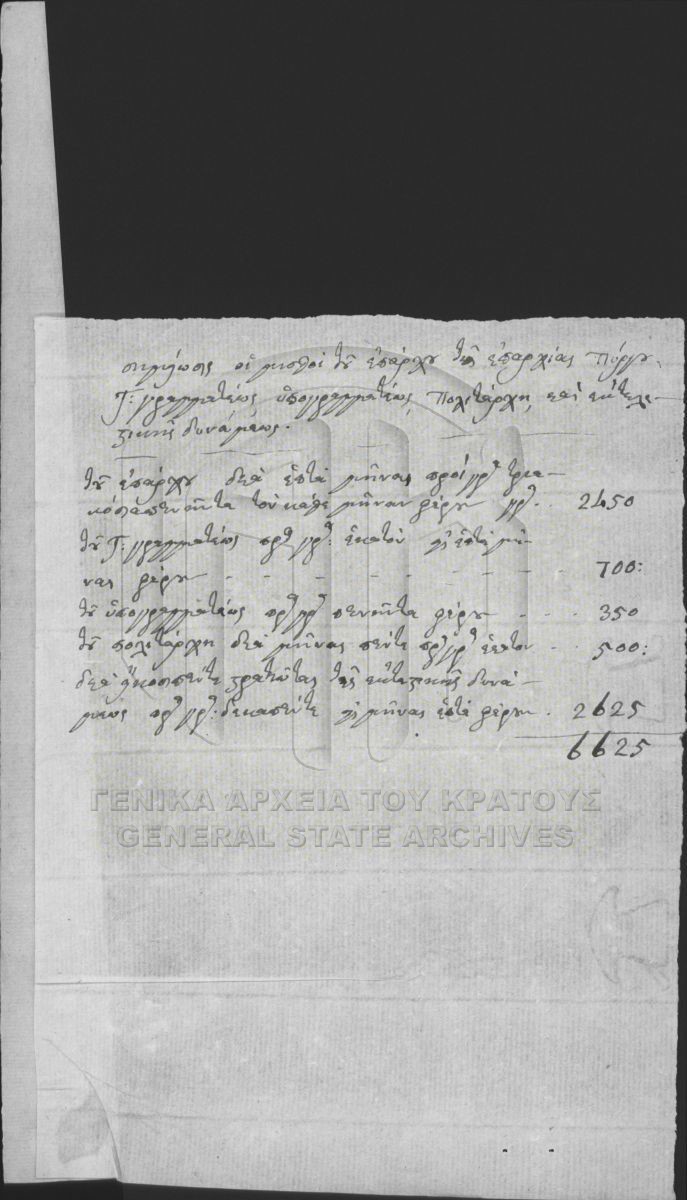 σημείωσις οἱ μισθοὶ τοῦ ἐπάρχου τῆς ἐπαρχίας Πύργου,
Γ: γραμματέως ὑπογραμματέως, Πολιτάρχη, καὶ ἐκτελε-
στικῆς δυνάμεως.
τοῦ ἐπάρχου διὰ ἑπτὰ μῆνας πρὸς γρ: τρια-
κόσια πενῆντα τὸν κάθε μῆναν φέρουν γρ. 2450
τοῦ Γ: γραμματέως πρὸς γρ: ἑκατὸν διὰ ἑπτὰ μῆ-
νας φέρουν - - - - - - - - 700:
τοῦ ὑπογραμματέως πρὸς γρ: πενῆντα φέρουν - - - 350
τοῦ πολιτάρχη διὰ μῆνας πέντε πρὸς γρ: ἑκατον - - 500:
διὰ ἡκοσιπέντε στρατιῶτας τῆς ἐκτελεστικῆς δυνά-
μεως πρὸς γρ: δεκαπέντε διὰ μῆνας ἑπτὰ φέρουν . 2625
6625
ΓΕΝΙΚΑ ΑΡΧΕΙΑ ΤΟΥ ΚΡΑΤΟΥΣ
GENERAL STATE ARCHIVES